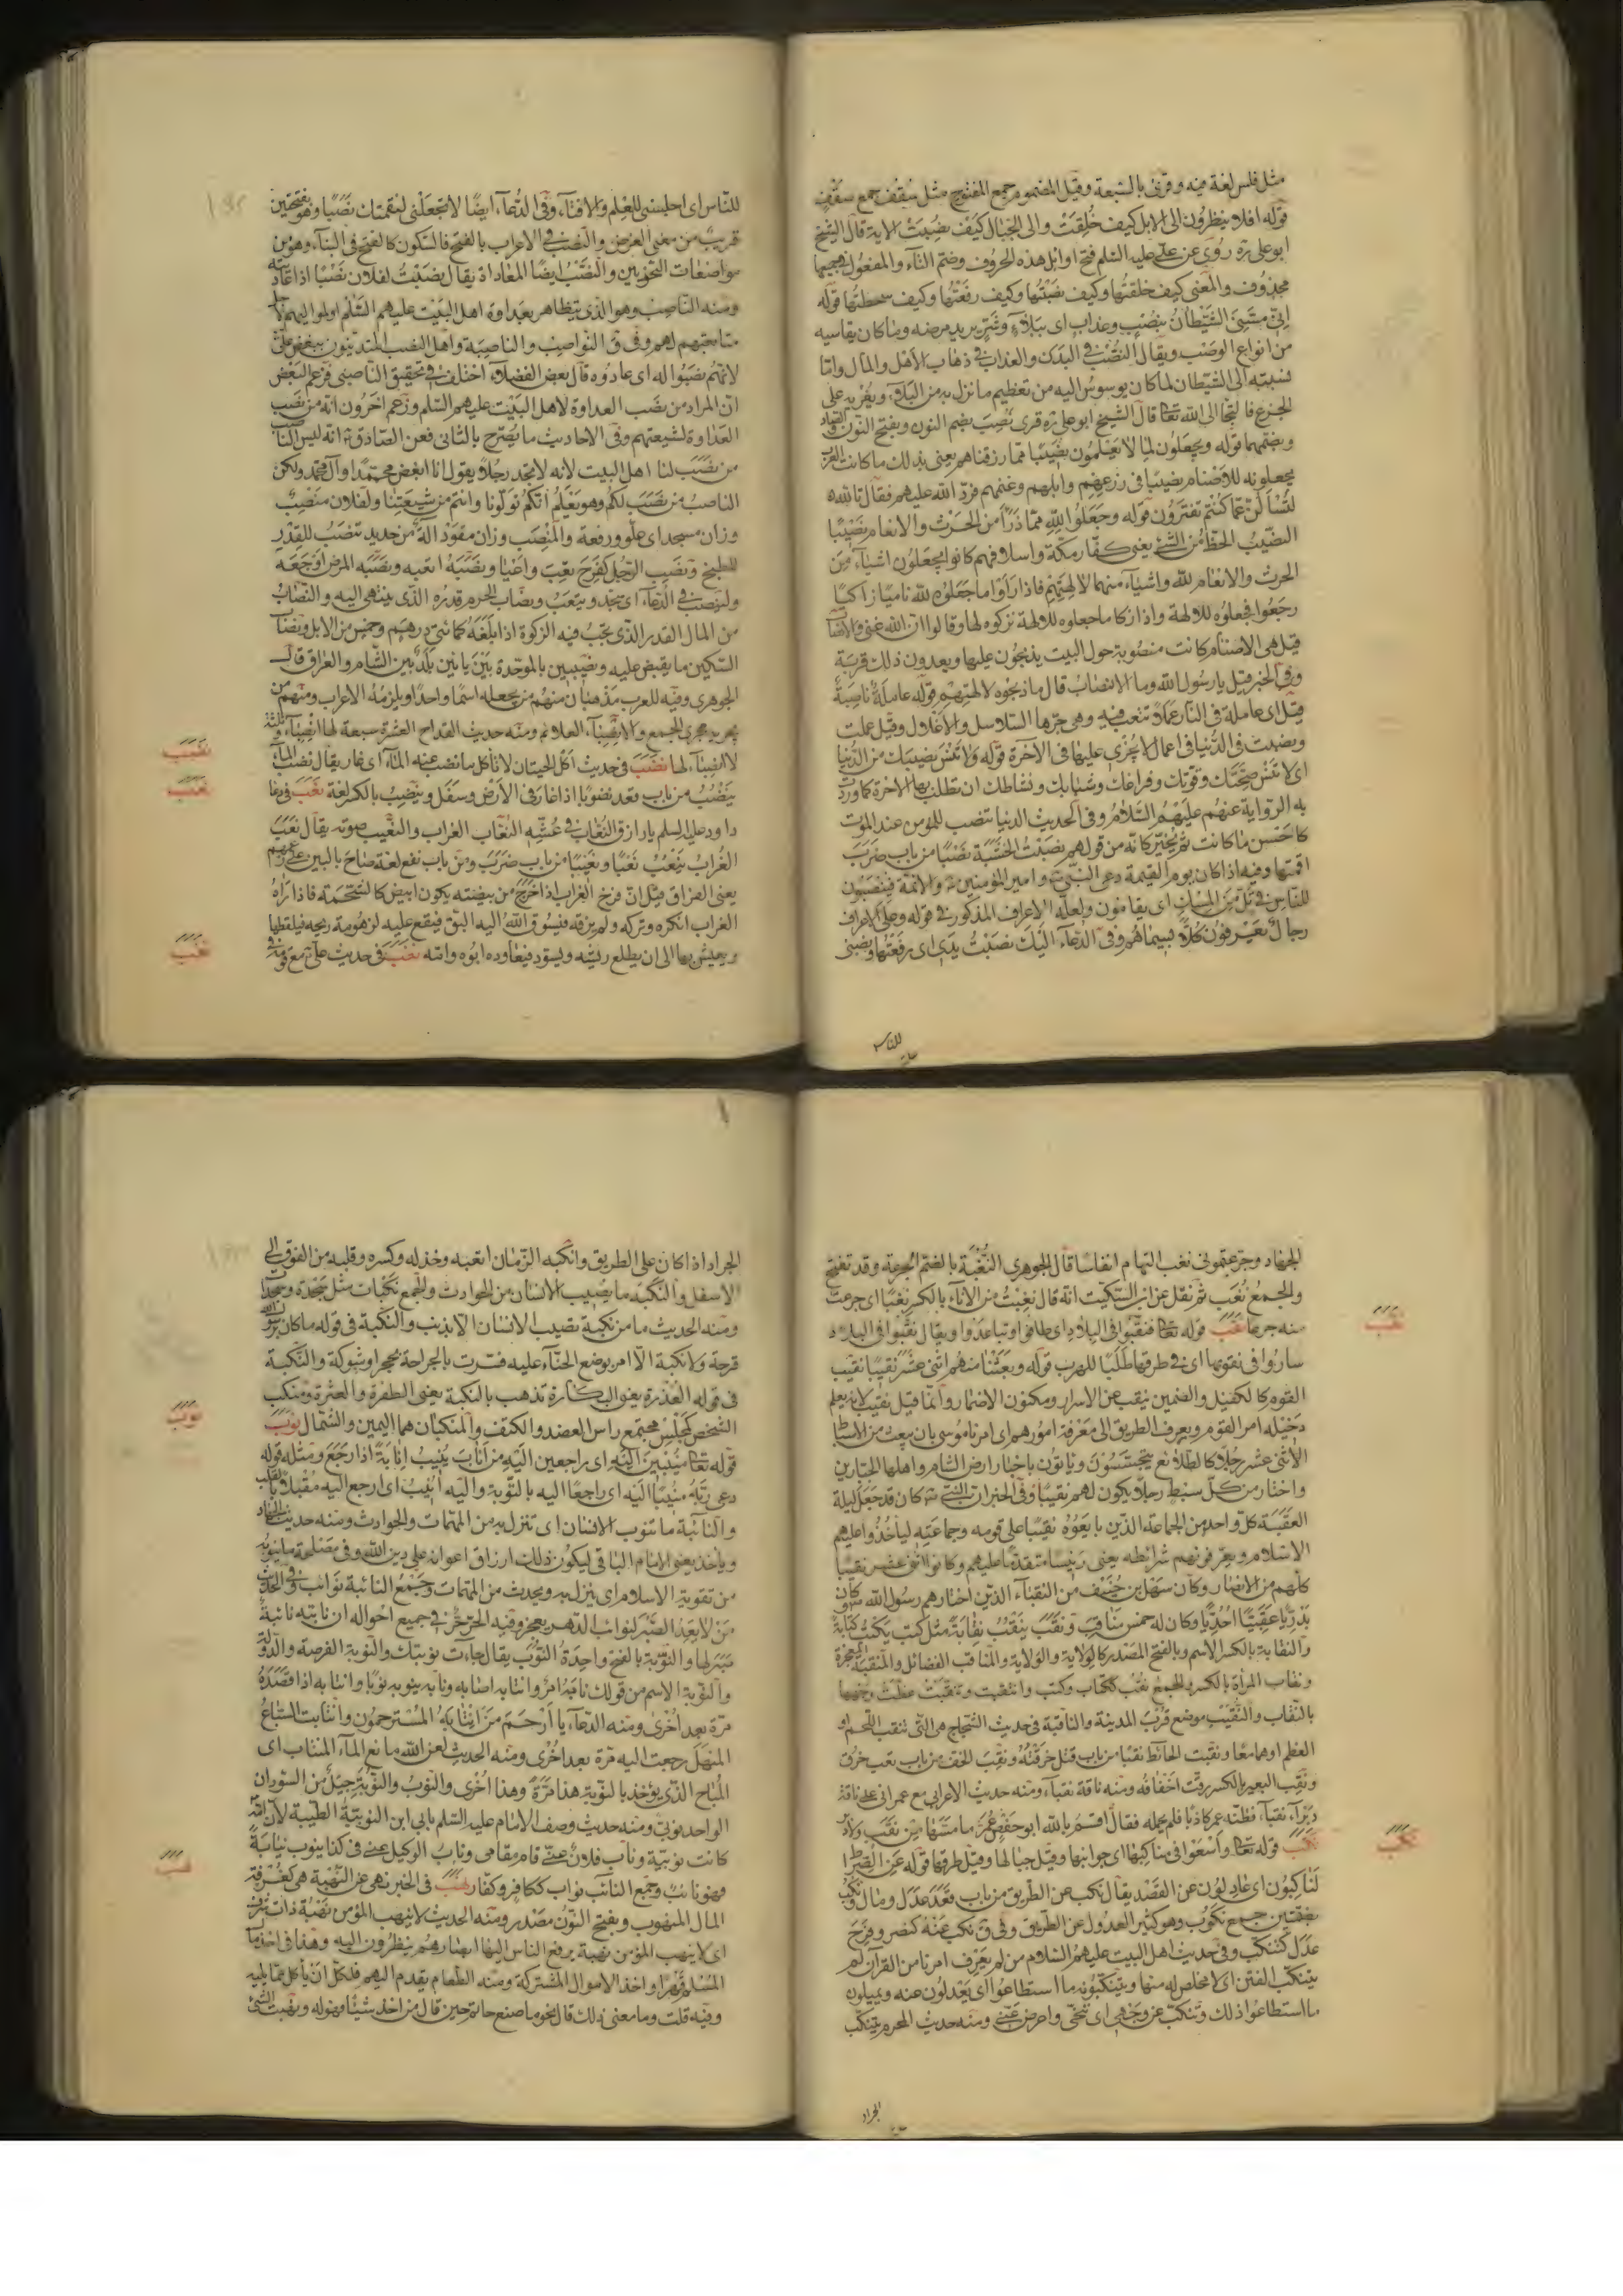 مثل فلس لغة فيه وقرئ بالسبعة وقيل المضموم جمع المفتوح مثل سقف جمع سقف
قوله افلا ينظرون الى الابل كيف خلقت والى الجبال كيف نصبت الاية قال الشيخ
ابو على ره روى عن على عليه السلم فتح اوائل هذه الحروف وضم التاء والمفعول جميعها
محذوف والمعنى كيف خلقتها وكيف نصبتها وكيف رفعتها وكيف سطحتها قوله
انى مسنى الشيطان بنصب وعذاب اى ببلاء وشر يريد مرضه وما كان يقاسيه
من انواع الوصب ويقال النصب فى البدن والعذاب فى ذهاب الاهل والمال وانما
نسبته الى الشيطان لما كان يوسوس اليه من تعظيم ما نزل به من البلاء ويغريه على
الجزع فالتجا الى الله تعا قال الشيخ ابو على ره قرئ بنصب بضم النون وبفتح النون والصاد
وبضمهما قوله ويجعلون لما لا يعلمون نصيبا مما رزقناهم يعنى بذلك ما كانت العرب
يجعلونه للاصنام نصيبا فى زرعهم وابلهم وغنمهم فرد الله عليهم فقال تالله
لتسألن عما كنتم تفترون قوله وجعلوا لله مما ذرأ من الحرث والانعام نصيبا
النصيب الحظ من الشئ يعنى كفار مكة واسلافهم كانوا يجعلون اشياء من
الحرث والانعام لله واشياء منهما لالهتهم فاذا رأوا ما جعلوه لله ناميا زاكيا
رجعوا فجعلوه للالهة واذا زكا ما جعلوه للالهة تركوه لها وقالوا ان الله غنى والانصاب
قيل هى الاصنام كانت منصوبة حول البيت يذبحون عليها ويعدون ذلك قربة
وفى الخبر قيل يا رسول الله وما الانصاب قال ما ذبحوه لالهتهم قوله عاملة ناصبة
قيل اى عاملة فى النار عملا تتعب فيه وهى جرها السلاسل والاغلال وقيل عملت
ونصبت فى الدنيا فى اعمال لا تجزى عليها فى الاخرة قوله ولا تنس نصيبك من الدنيا
اى لا تنس صحتك وقوتك وفراغك وشبابك ونشاطك ان تطلب بها الاخرة كما وردت
به الرواية عنهم عليهم السلام وفى الحديث الدنيا تنصب للمؤمن عند الموت
كاحسن ما كانت ثم يخير كانه من قولهم نصبت الخشبة نصبا من باب ضرب
اقمتها وفيه اذا كان يوم القيمة دعى النبى ص وامير المؤمنين ع والائمة فينصبون
للناس فى تل من المسك اى يقامون ولعله الاعراف المذكور فى قوله وعلى الاعراف
رجال يعرفون كلا بسيماهم وفى الدعاء اليك نصبت يدى اى رفعتها ونصبنى
للناس
للناس اى احلسنى للعلم والافتاء وفى الدعاء ايضا لا تجعلنى لنقمتك نصبا وهو بفتحتين
قريب من معنى الغرض والنصب فى الاعراب بالفتح فالسكون كالفتح فى البناء وهو من
مواضعات النحويين والنصب ايضا المعاداة يقال نصبت لفلان نصبا اذا عاديته
ومنه الناصب وهو الذى يتظاهر بعداوة اهل البيت عليهم السلم او لمواليهم لاجل
متابعتهم لهم وفى ق النواصب والناصبة واهل النصب المتدينون ببغض على
لانهم نصبوا له اى عادوه قال بعض الفضلاء اختلف فى تحقيق الناصبى فزعم البعض
ان المراد من نصب العداوة لاهل البيت عليهم السلم وزعم اخرون انه من نصب
العداوة لشيعتهم وفى الاحاديث ما يصرح بالثانى فعن الصادق ع انه ليس الناصب
من نصب لنا اهل البيت لانه لا تجد رجلا يقول انا ابغض محمدا وآل محمد ولكن
الناصب من نصب لكم وهو يعلم انكم تولونا وانتم من شيعتنا ولفلان منصب
وزان مسجد اى علو ورفعة والمنصب وزان مقود آلة من حديد تنصب للقدر
للطبخ ونصب الرجل كفرح تعب واعيا ونصبه اتعبه ونصبه المرض اوجعه
ولينصب فى الدعاء اى يجد ويتعب ونصاب الحرم قدره الذى ينتهى اليه والنصاب
من المال القدر الذى تجب فيه الزكوة اذا بلغه كمائتى درهم وخمس من الابل ونصاب
السكين ما يقبض عليه ونصيبين بالموحدة بين يائين بلد بين الشام والعراق قال
الجوهرى وفيه للعرب مذهبان منهم من يجعله اسما واحدا ويلزمه الاعراب ومنهم من
يجريه مجرى الجمع والانصباء العلائم ومنه حديث القداح العشرة سبعة لها انصباء وثلثة
لا انصباء لها نضب فى حديث اكل الحيتان لا تاكل ما نضب عنه الماء اى غار يقال نضب الماء
ينضب من باب قعد نضوبا اذا غار فى الارض وسفل وينضب بالكسر لغة نعب فى دعا
داود عليه السلم يا رازق النعاب فى عشه النعاب الغراب والنعيب صوته يقال نعب
الغراب ينعب نعبا ونعيبا من باب ضرب ومن باب نفع لغة صاح بالبين على زعمهم
يعنى الفراق قيل ان فرخ الغراب اذا خرج من بيضته يكون ابيض كالشحمة فاذا رآه
الغراب انكره وتركه ولم يزقه فيسوق الله اليه البق فيقع عليه لزهومة ريحه فيلقطها
ويعيش بها الى ان يطلع ريشه ويسود فيعاوده ابوه وامه نغب فى حديث على ع مع قومه فى
نضب
نعب
نغب
الجهاد وجرعتمونى نغب التهمام انفاسا قال الجوهرى النغبة بالضم الجرعة وقد تفتح
والجمع نغب ثم نقل عن ابن السكيت انه قال نغبت من الاناء بالكسر نغبا اى جرعت
منه جرعا نقب قوله تعا فنقبوا فى البلاد اى طافوا وتباعدوا ويقال نقبوا فى البلاد
ساروا فى نقوبها اى فى طرقها طلبا للهرب قوله وبعثنا منهم اثنى عشر نقيبا نقيب
القوم كالكفيل والضمين ينقب عن الاسرار ومكنون الاضمار وانما قيل نقيب لانه يعلم
دخيلة امر القوم ويعرف الطريق الى معرفة امورهم اى امرنا موسى بان يبعث من الاسباط
الاثنى عشر رجلا كالطلائع يتجسسون ويأتون باخبار ارض الشام واهلها الجبارين
واختار من كل سبط رجلا يكون لهم نقيبا وفى الخبر ان النبى ص كان قد جعل ليلة
العقبة كل واحد من الجماعة الذين بايعوه نقيبا على قومه وجماعته لياخذوا عليهم
الاسلام ويعرفونهم شرائطه يعنى رئيسا متقدما عليهم وكانوا اثنى عشر نقيبا
كلهم من الانصار وكان سهل بن حنيف من النقباء الذين اختارهم رسول الله ص وكان
بدريا عقبيا احديا وكان له خمس مناقب ونقب ينقب نقابة مثل كتب يكتب كتابة
والنقابة بالكسر الاسم وبالفتح المصدر كالولاية والولاية والمناقب الفضائل والمنقبة المفخرة
ونقاب المرأة بالكسر والجمع نقب ككتاب وكتب وانتقبت وتنقبت غطت وجهها
بالنقاب والنقيب موضع قرب المدينة والناقبة فى حديث الشجاج هى التى تنقب اللحم او
العظم او هما معا ونقبت الحائط نقبا من باب قتل خرقته ونقب الخف من باب تعب خرق
ونقب البعير بالكسر رقت اخفافه ومنه ناقة نقباء ومنه حديث الاعرابى مع عمر انى على ناقة
دبراء نقباء فظنه عمر كاذبا فلم يحمله فقال اقسم بالله ابو حفص عمر ما مسها من نقب ولا دبر
نكب قوله تعا واسعوا فى مناكبها اى جوانبها وقيل جبالها وقيل طرقها قوله عن الصراط
لناكبون اى عادلون عن القصد يقال نكب عن الطريق من باب قعد عدل ومال ونكب
بضمتين جمع نكوب وهو كثير العدول عن الطريق وفى ق نكب عنه كنصر وفرح
عدل كتنكب وفى حديث اهل البيت عليهم السلام من لم يعرف امرنا من القرآن لم
يتنكب الفتن اى لا مخلص له منها ويتنكبونه ما استطاعوا اى يعدلون عنه ويميلون
ما استطاعوا ذلك وتنكب عن وجهى اى تنحى واعرض عنى ومنه حديث المحرم يتنكب
نقب
نكب
الجراد
الجراد اذا كان على الطريق وانكبه الزمان اتعبه وخذله وكسره وقلبه من الفوق الى
الاسفل والنكبة ما يصيب الانسان من الحوادث والجمع نكبات مثل سجدة وسجدات
ومنه الحديث ما من نكبة تصيب الانسان الا بذنب والنكبة فى قوله ما كان برسول الله
قرحة ولا نكبة الا امر بوضع الحناء عليه فسرت بالجراحة بحجر او شوكة والنكبة
فى قوله العذرة يعنى البكارة تذهب بالنكبة يعنى الطفرة والعثرة ومنكب
الشخص كمجلس مجتمع راس العضد والكتف والمنكبان هما اليمين والشمال نوب
قوله تعا منيبين اليه اى راجعين اليه من اناب ينيب انابة اذا رجع ومثله قوله
دعى ربه منيبا اليه اى راجعا اليه بالتوبة واليه انيب اى ارجع اليه مقبلا بالقلب
والنائبة ما تنوب الانسان اى تنزل به من المهمات والحوادث ومنه حديث الجهاد
وياخذ يعنى الامام الباقى ليكون ذلك ارزاق اعوانه على دين الله وفى مصلحة ما ينوبه
من تقوية الاسلام اى ينزل به ويحدث من المهمات وجمع النائبة نوائب وفى الحديث
من لا يعد الصبر لنوائب الدهر يعجز وفيه الحر حر فى جميع احواله ان نابته نائبة
صبر لها والنوبة بالفتح واحدة النوب يقال جاءت نوبتك والنوبة الفرصة والدولة
والنوبة الاسم من قولك نابه امر وانتابه اصابه ونابه ينوبه نوبا وانتابه اذا قصده
مرة بعد اخرى ومنه الدعاء يا ارحم من انتابه المسترحمون وانتابت السباع
المنهل رجعت اليه مرة بعد اخرى ومنه الحديث لعن الله مانع الماء المنتاب اى
المباح الذى يؤخذ بالنوبة هذا مرة وهذا اخرى والنوب والنوبة جيل من السودان
الواحد نوبى ومنه حديث وصف الامام عليه السلم بابى ابن النوبية الطيبة لان امه
كانت نوبية وناب فلان عنى قام مقامى وناب الوكيل عنى فى كذا ينوب نيابة
فهو نائب وجمع النائب نواب ككافر وكفار نهب فى الخبر نهى عن النهبة هى كغرفة
المال المنهوب وبفتح النون مصدر ومنه الحديث لا ينهب المؤمن نهبة ذات شرف
اى لا ينهب المؤمن نهبة يرفع الناس اليها ابصارهم ينظرون اليه وهذا فى اخذ مال
المسلم قهرا واخذ الاموال المشتركة ومنه الطعام يقدم اليهم فلكل ان ياكل مما يليه
وفيه قلت وما معنى ذلك قال نحو ما صنع حاتم حين قال من اخذ شيئا فهو له ونهبت الشئ
نوب
نهب